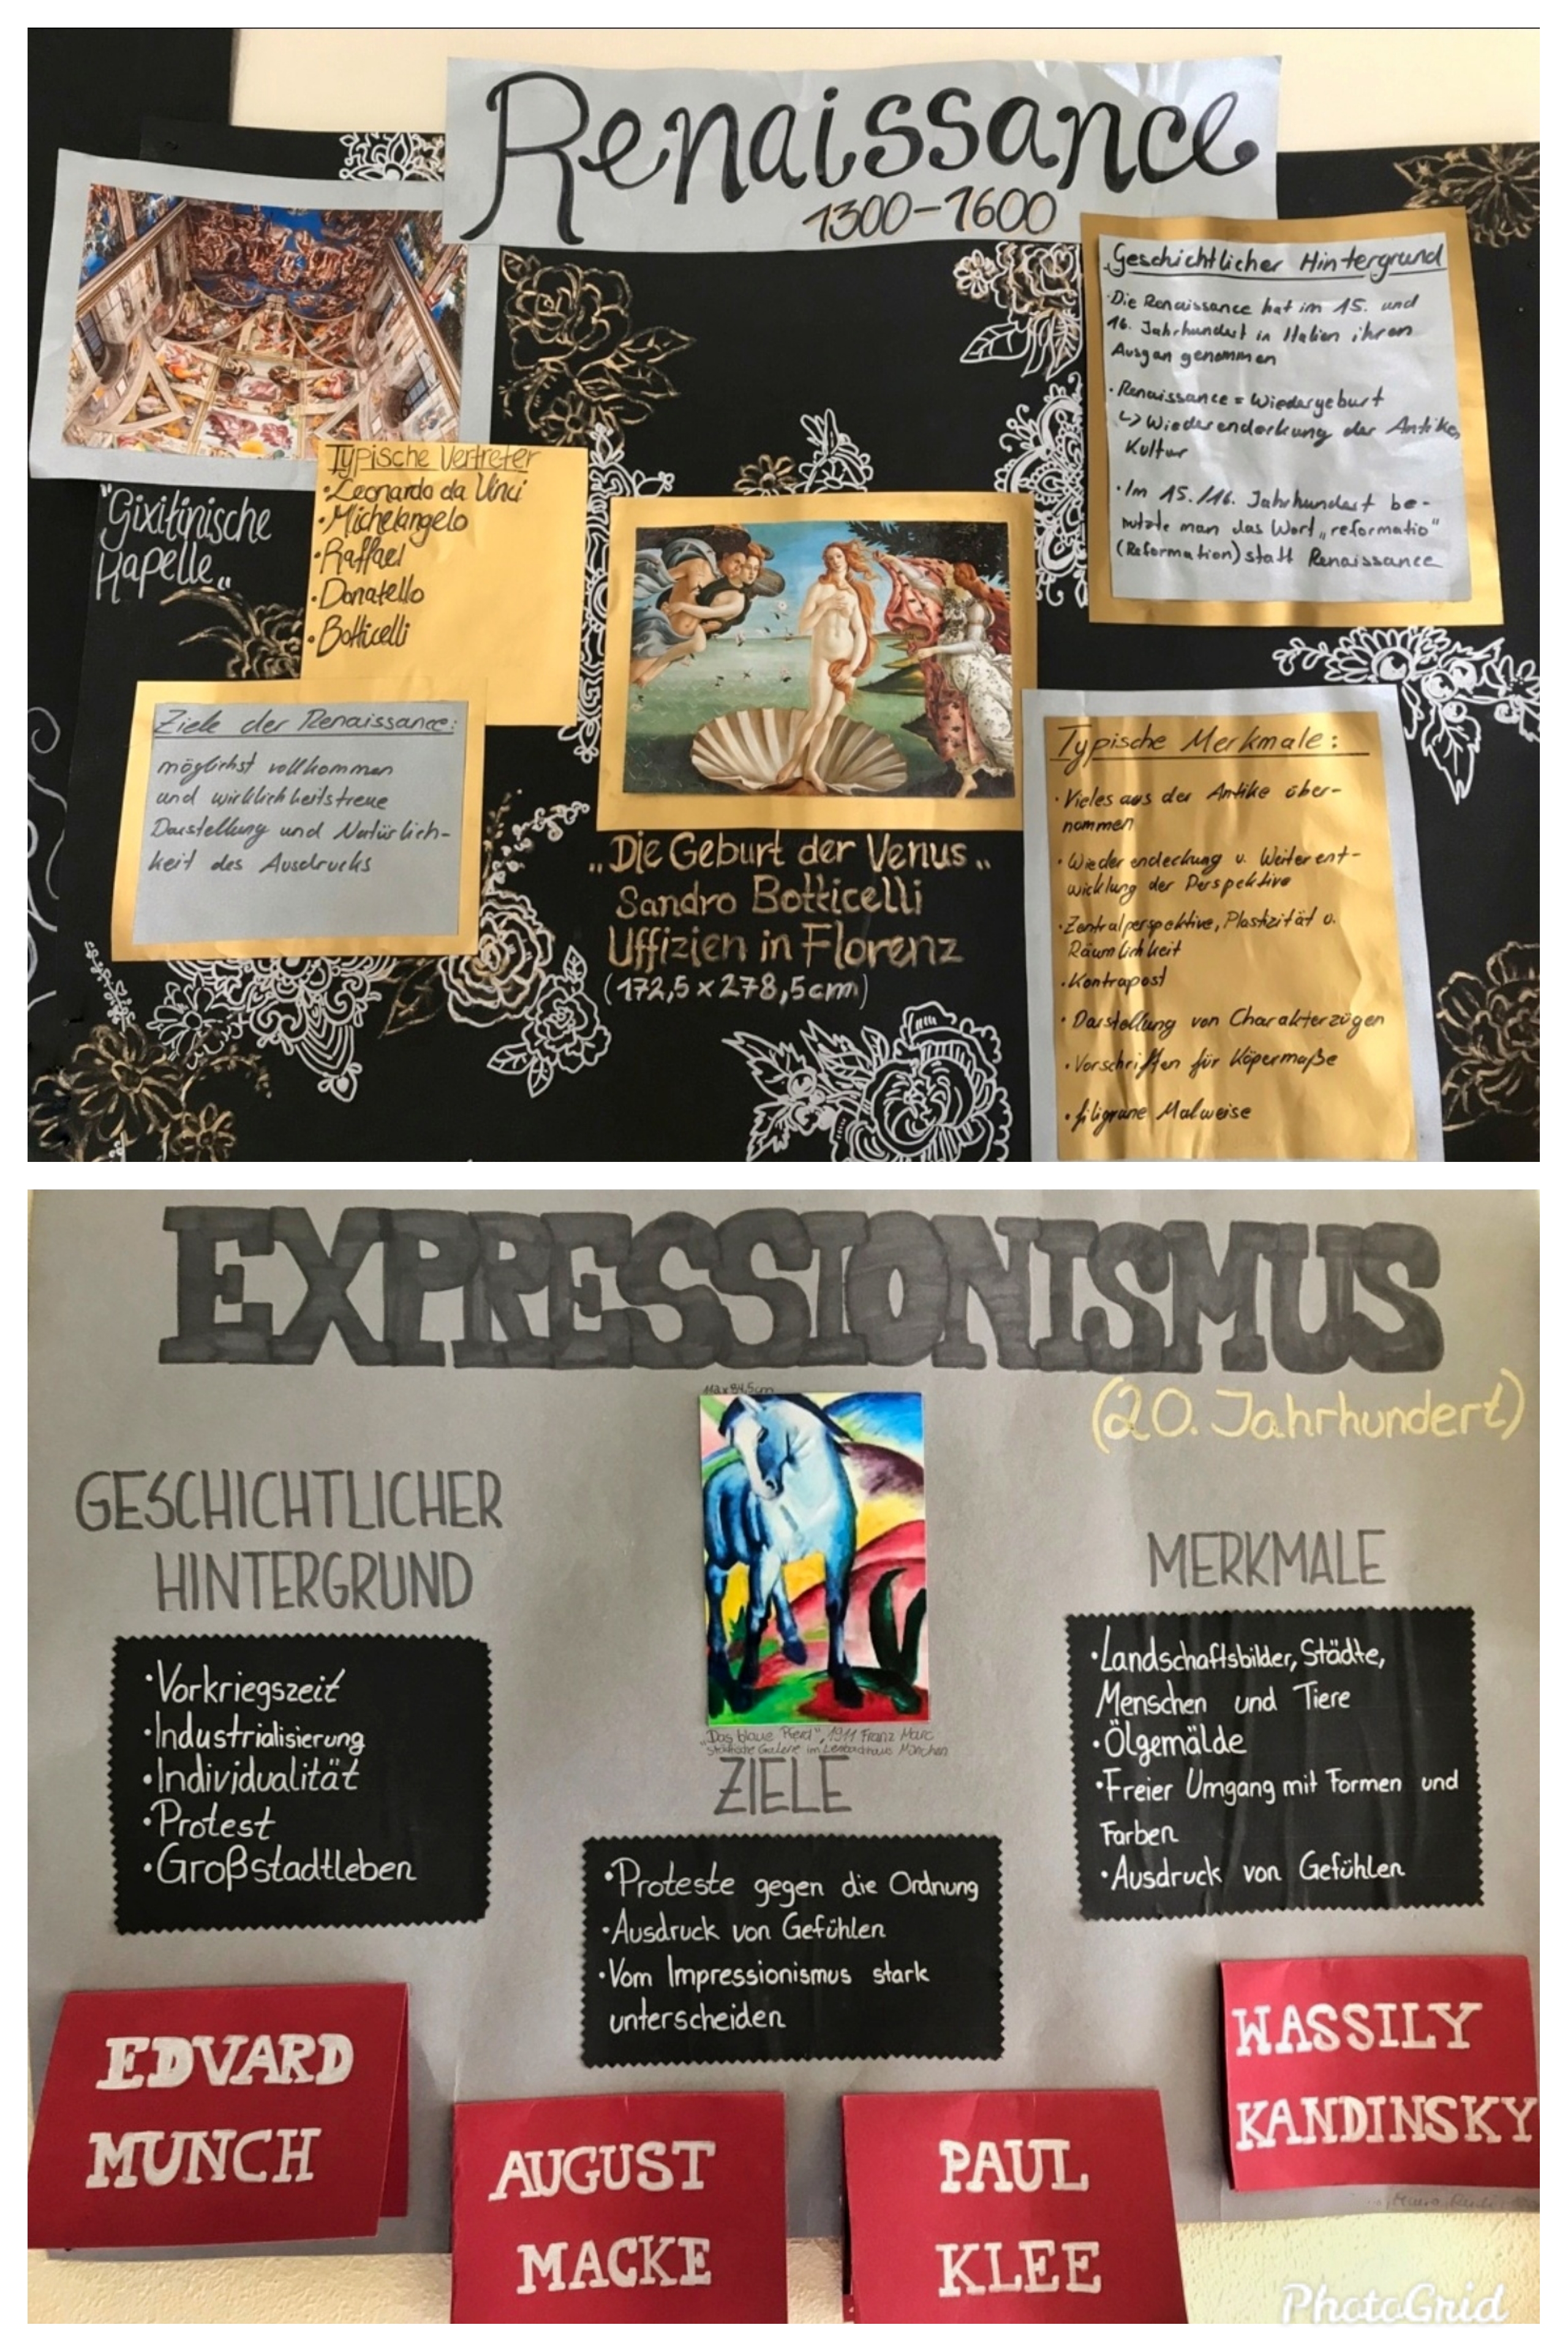 Renaissance
1300-1600
"Gixitinische
Kapelle„
Typische Vertreter
·Leonardo da Vinci
·Michelangelo
·Raffael
·Donatello
·Botticelli
Ziele der Renaissance:
möglichst vollkommen
und wirklichkeitstreue
Darstellung und Natürlich-
keit des Ausdrucks
„Die Geburt der Venus„
Sandro Botticelli
Uffizien in Florenz
(172,5 x 278,5cm)
Geschichtlicher Hintergrund
·Die Renaissance hat im 15. und
16. Jahrhundert in Italien ihren
Ausgan genommen
·Renaissance = Wiedergeburt
↳ Wiederendeckung der Antike,
Kultur
·Im 15./16. Jahrhundert be-
nutzte man das Wort „reformatio"
(Reformation) statt Renaissance
Typische Merkmale:
·Vieles aus der Antike über-
nommen
·Wiederendeckung u. Weiterent-
wicklung der Perspektive
·Zentralperspektive, Plastizität u.
Räumlichkeit
·Kontrapost
·Darstellung von Charakterzügen
·Vorschriften für Köpermaße
·filigrane Malweise
EXPRESSIONISMUS
(20. Jahrhundert)
112 x 84,5cm
GESCHICHTLICHER
HINTERGRUND
·Vorkriegszeit
·Industrialisierung
·Individualität
·Protest
·Großstadtleben
„Das blaue Pferd", 1911 Franz Marc
Städtische Galerie im Lenbachhaus München
ZIELE
·Proteste gegen die Ordnung
·Ausdruck von Gefühlen
·Vom Impressionismus stark
unterscheiden
MERKMALE
·Landschaftsbilder, Städte,
Menschen und Tiere
·Ölgemälde
·Freier Umgang mit Formen und
Farben
·Ausdruck von Gefühlen
EDVARD
MUNCH
AUGUST
MACKE
PAUL
KLEE
WASSILY
KANDINSKY
PhotoGrid